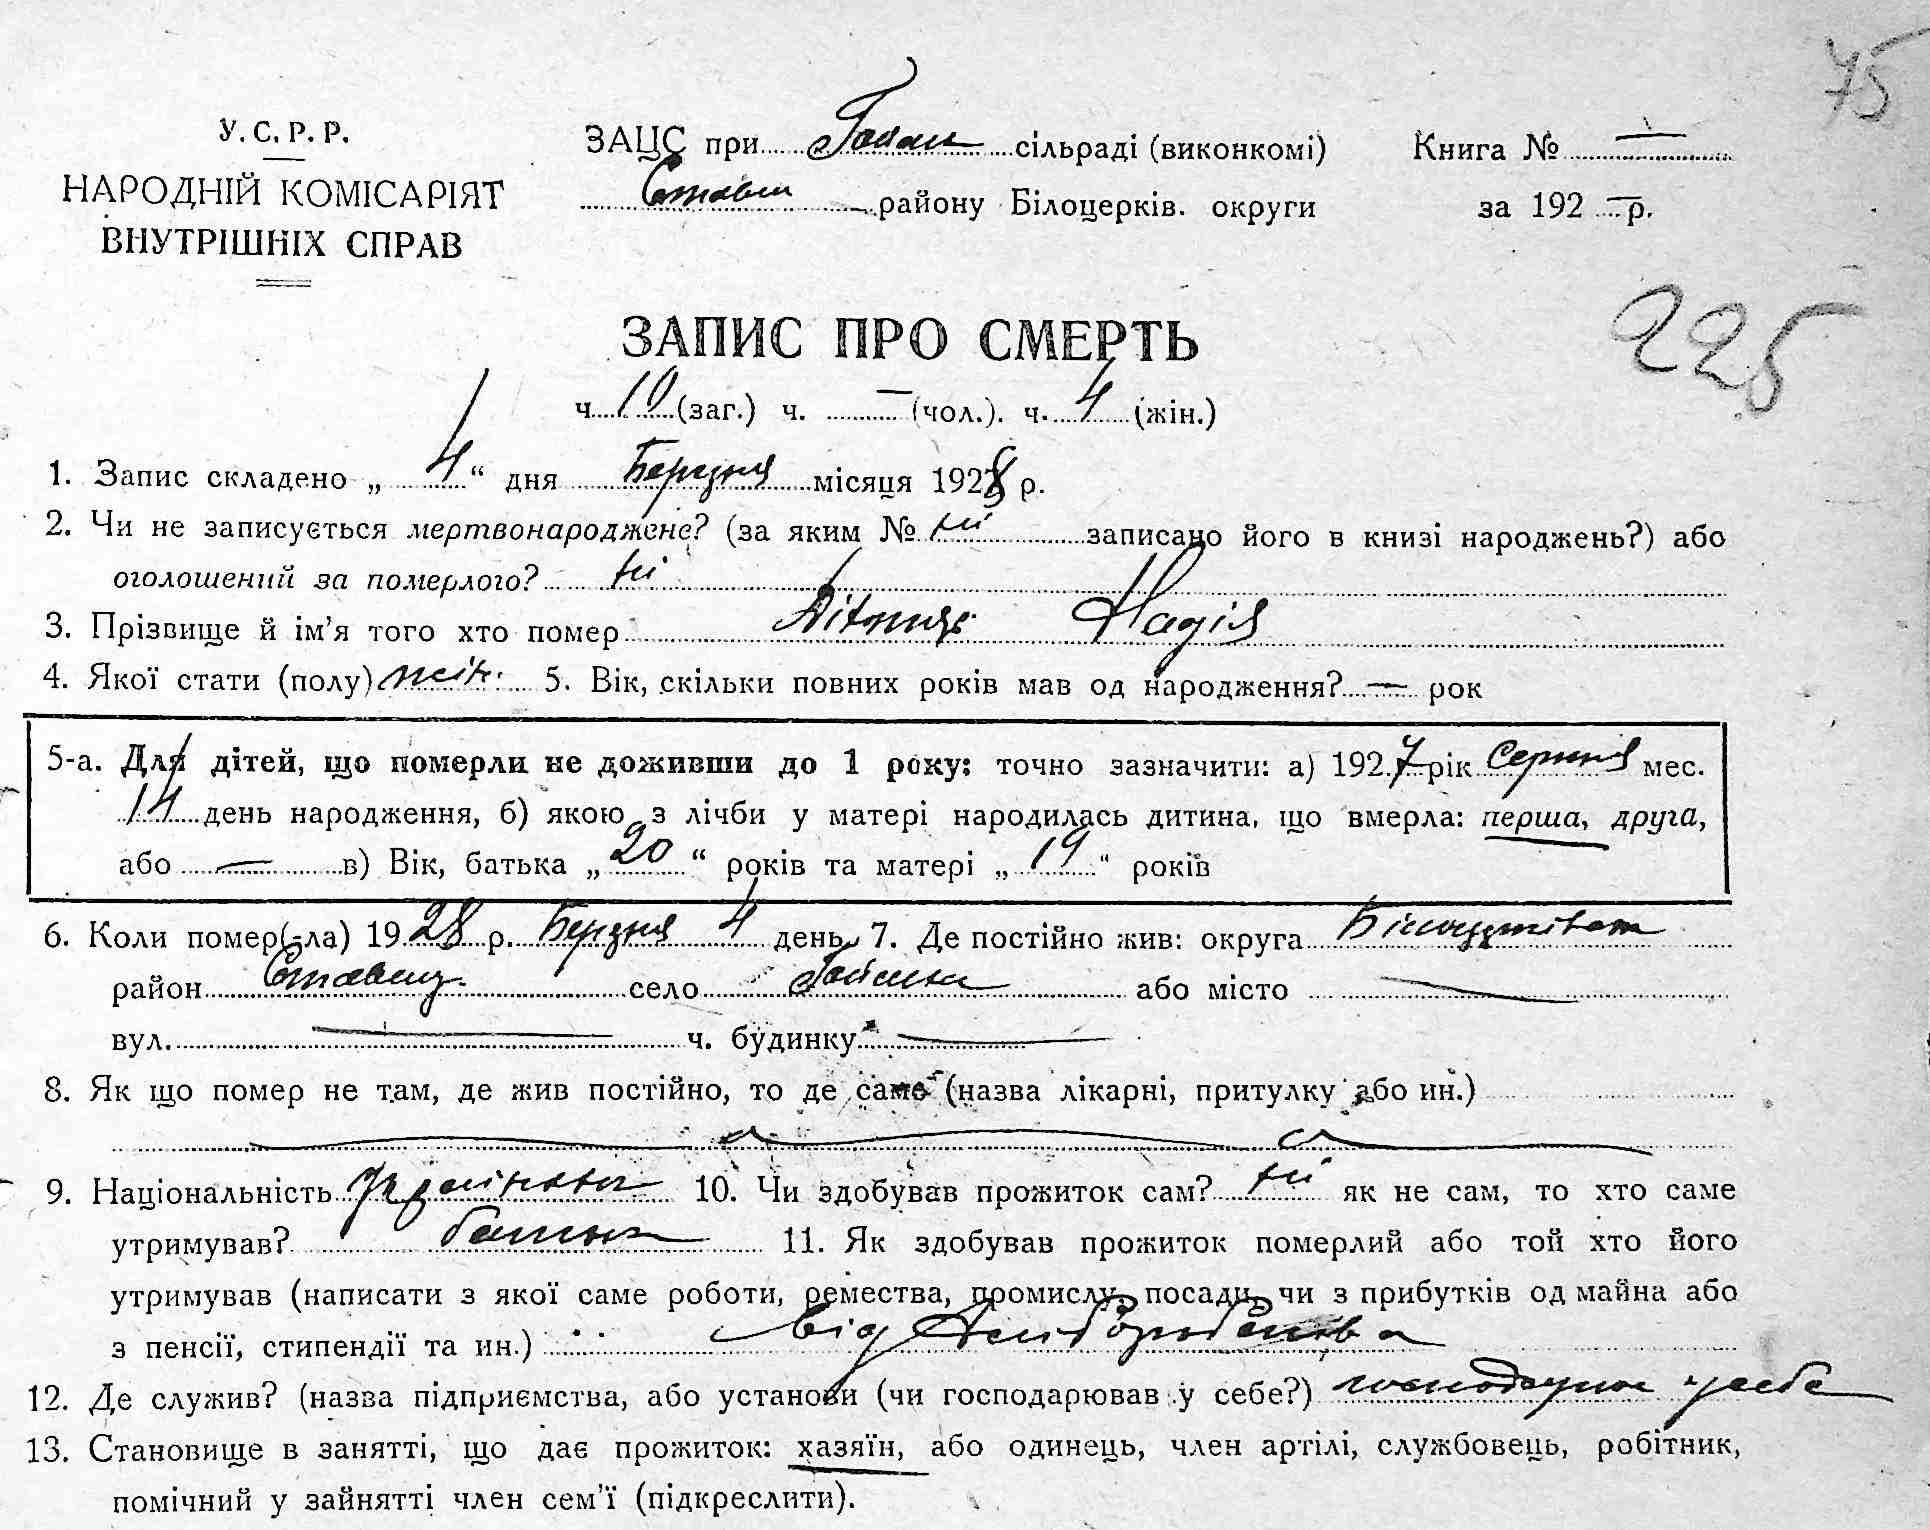 75
У.С.Р.Р.
НАРОДНІЙ КОМІСАРІЯТ
ВНУТРІШНІХ СПРАВ
ЗАЦС при сільраді (виконкомі)
Ставищ району Білоцерків. округи
Книга № —
за 192 — р.
225
ЗАПИС ПРО СМЕРТЬ
ч. 10 (заг.) ч. — (чол.). ч. 4 (жін.)
1. Запис складено „ 4 “ дня Березня місяця 1928 р.
2. Чи не записується мертвонароджене? (за яким № ні записано його в книзі народжень?) або
оголошений за померлого? ні
3. Прізвище й ім’я того хто помер Надія
4. Якої стати (полу) жін. 5. Вік, скільки повних років мав од народження? — рок
5-а. Для дітей, що померли не доживши до 1 року: точно зазначити: а) 1927 рік Серпня мес.
14 день народження, б) якою з лічби у матері народилась дитина, що вмерла: перша, друга,
або — в) Вік, батька „ 20 “ років та матері „ 19 “ років
6. Коли помер(-ла) 1928 р. Березня 4 день 7. Де постійно жив: округа
район Ставищ. село або місто —
вул. — ч. будинку —
8. Як що помер не там, де жив постійно, то де саме (назва лікарні, притулку або ин.)
9. Національність українка 10. Чи здобував прожиток сам? ні як не сам, то хто саме
утримував? батько 11. Як здобував прожиток померлий або той хто його
утримував (написати з якої саме роботи, ремества, промислу, посади, чи з прибутків од майна або
з пенсії, стипендії та ин.) від хліборобства
12. Де служив? (назва підприємства, або установи (чи господарював у себе?) у себе
13. Становище в занятті, що дає прожиток: хазяїн, або одинець, член артілі, службовець, робітник,
помічний у зайнятті член сем’ї (підкреслити).